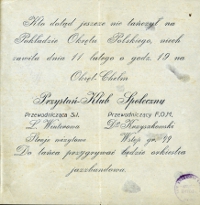 Kto dotąd jeszcze nie tańczył na
Pokładzie Okrętu Polskiego, niech
zawita dnia 11 lutego o godz. 19 na
Okręt-Chełm
Przystań-Klub Społeczny
Przewodnicząca S.I. Przewodniczący P.O.M.
L. Winterowa Dr Krzyszkowski
Stroje Wstęp gr. 99
Do tańca przygrywać będzie orkiestra
jazzbandowa.